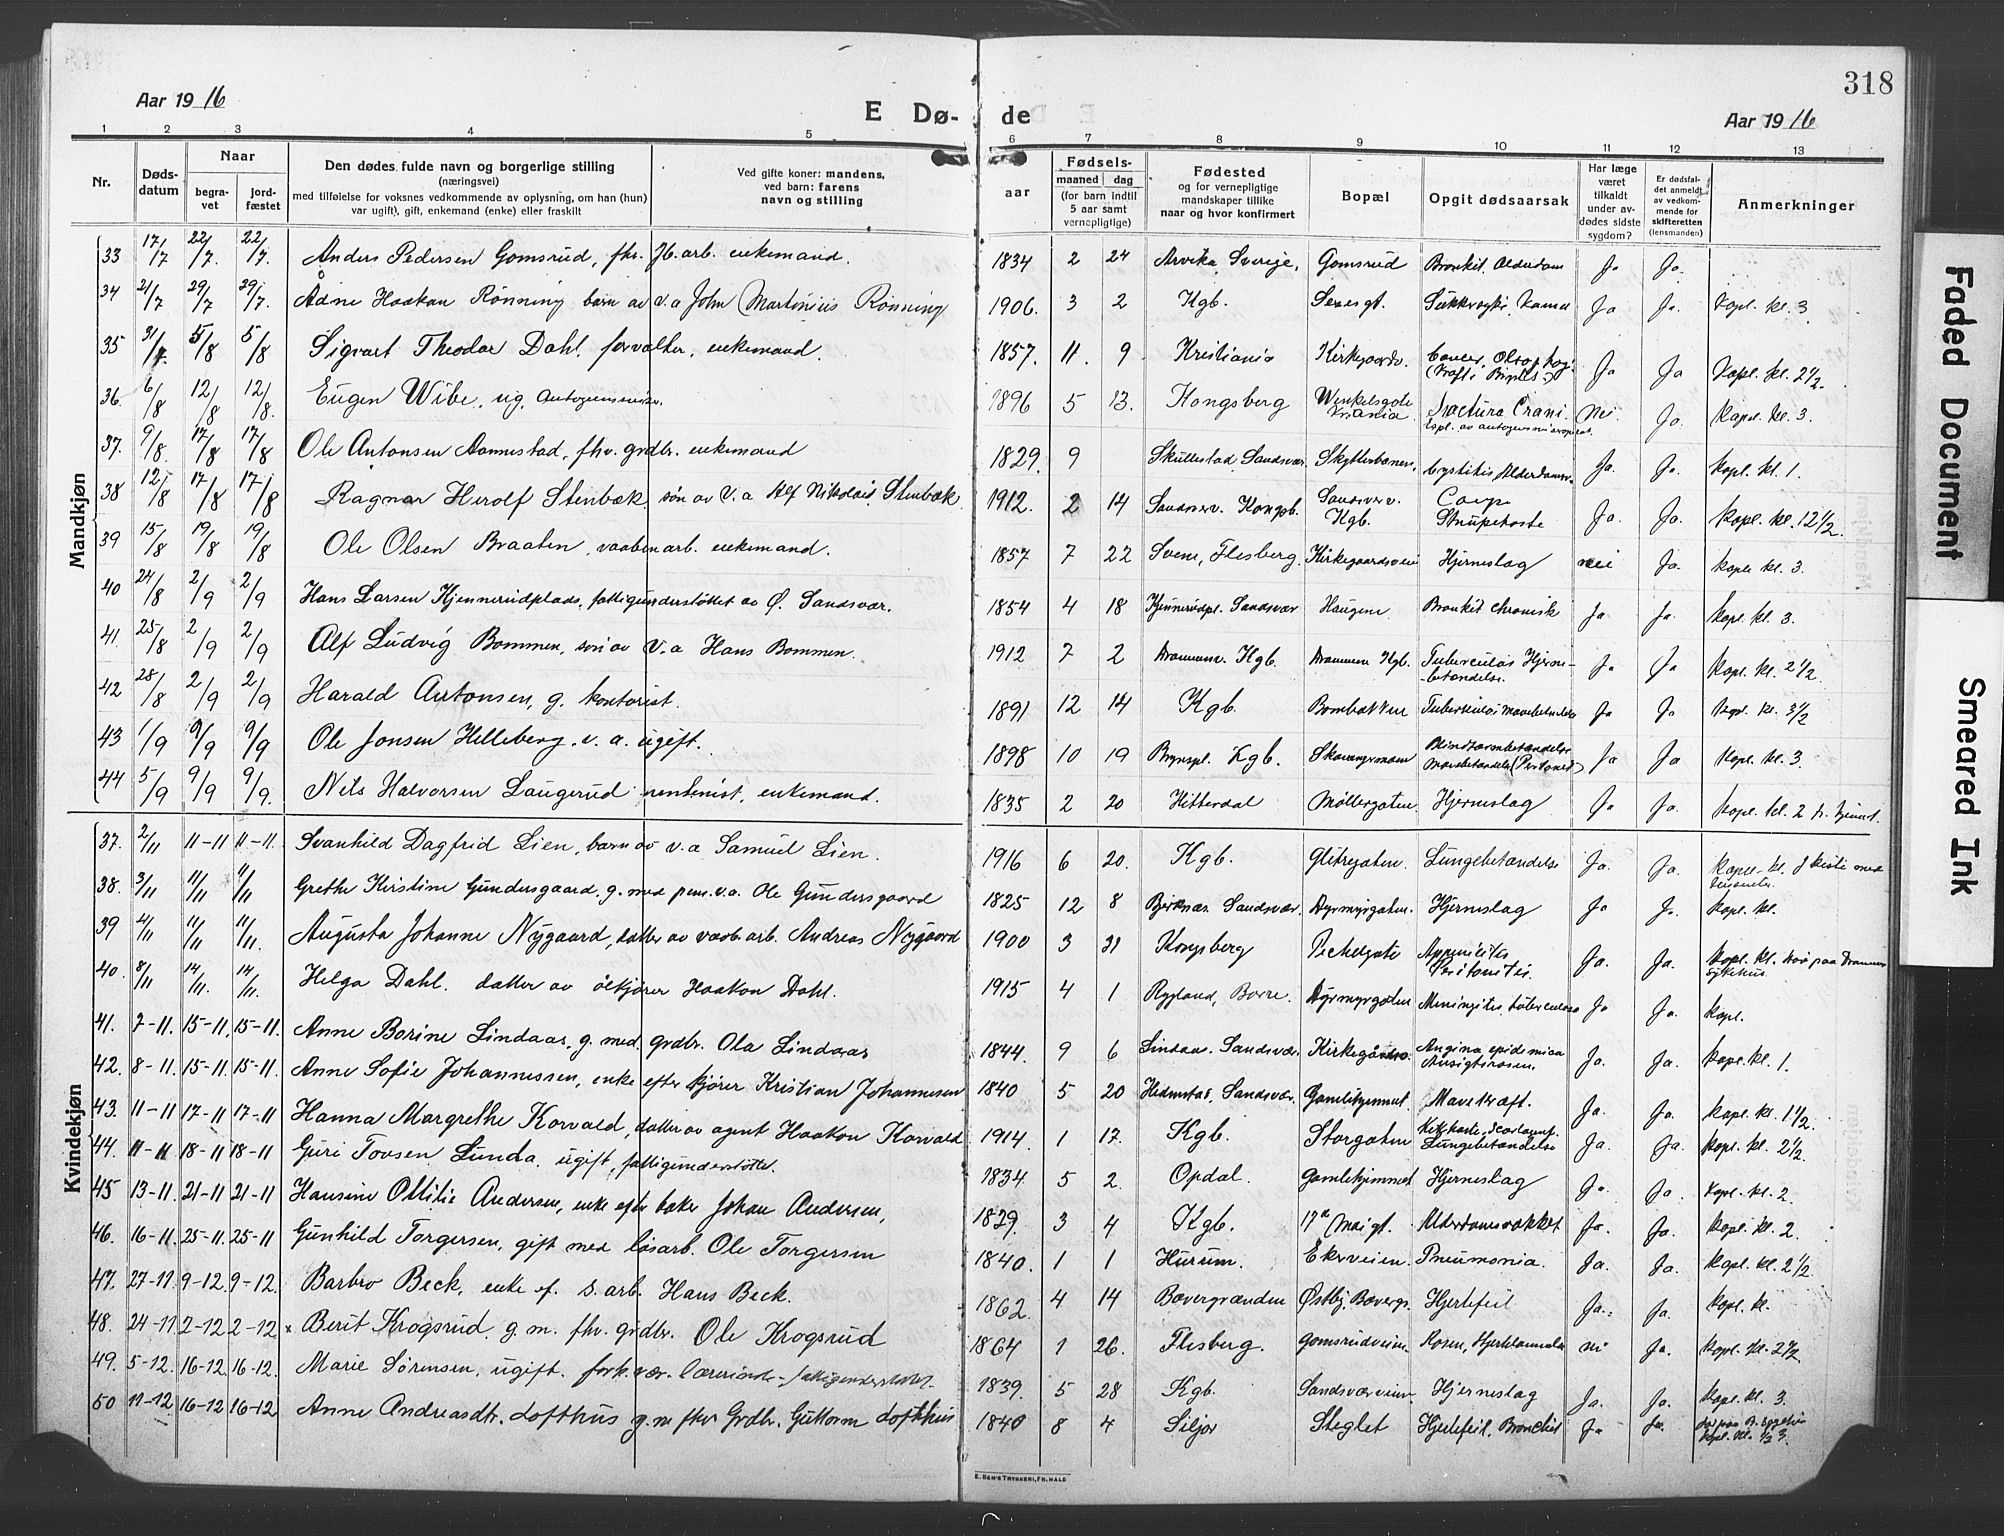 318
Aar 1916
E Dø-
de
Aar 1916
1 2 3 4 5 6 7 8 9 10 11 12 13
Nr.
Døds-
datum
Naar
begra-
vet
jord-
fæstet
Den dødes fulde navn og borgerlige stilling
(næringsvei)
med tilføielse for voksnes vedkommende av oplysning, om han (hun)
var ugift), gift, enkemand (enke) eller fraskilt
Ved gifte koner: mandens,
ved barn: farens
navn og stilling
aar
Fødsels-
maaned dag
(for barn indtil
5 aar samt
vernepligtige)
Fødested
og for vernepligtige
mandskaper tillike
naar og hvor konfirmert
Bopæl
Opgit dødsaarsak
Har læge
været
tilkaldt
under av-
dødes sidste
sygdom?
Er dødsfal-
det anmeldt
av vedkom-
mende for
skifteretten
(lensmanden)
Anmerkninger
Mandkjøn
33 17/7 22/7. 22/7. Anders Pedersen Gomsrud, fhv. Jb. arb. enkemand. 1834 2 24 Arvika, Sverige, Gomsrud Bronkit, Alderdom Ja Ja.
34 21/7 29/7 29/7. Ådne Haakon Rønning barn av v.a John Martinius Rønning 1906. 3 2 Kgb. Ja Ja. Kapl. kl. 3
35 31/7. 5/8 5/8 Sigvart Theodor Dahl, forvalter, enkemand. 1857. 11. 9 Kristiania Kirkegaardsv. Cancer Ja Ja Kapl. kl. 2 1/2.
36. 6/8 12/8 12/8. Eugen Wibe, ug. 1896 5 13. Kongsberg Winkelsgate Fractura Crani. Nei. Ja. Kapel. kl. 3.
37. 9/8 17/8 17/8 Ole Antonsen Aannestad, fhv. grdbr. enkemand 1829. 9 Skullestad Sandsvær Cystitis, Alderdomssv. Ja. Ja. Kapl. kl. 1.
38 12/8 17/8 17/8 Ragnar Herolf Stenbæk, søn av v.a Alf Nikolais Stenbæk 1912. 2 14 Sandsværv. Kongsb. Sandsværv. Kgb. Strupehoste Ja. Ja. Kapel. kl. 12 1/2.
39 15/8 19/8 19/8 Ole Olsen Braaten, vaabenarb. enkemand. 1857 7 22 Svene, Flesberg Kirkegaardsveien Hjerneslag nei Ja. Kapel. kl. 3.
40 24/8 2/9 2/9 Hans Larsen Kjennerudplads, fattigunderstøttet av Ø. Sandsvær. 1854 4 18 Kjennerudpl. Sandsvær Haugene Bronkit chronisk Ja Ja. Kapel. kl. 3.
41. 25/8 2/9 2/9 Alf Ludvig Bommen, søn av v.a Hans Bommen. 1912 7 2 Drammensv. Kgb. Drammensv. Kgb. Tuberculøs Hjerne-
betændelse. Ja Ja Kapel. kl. 2 1/2.
42 28/8 2/9 2/9 Harald Antonsen, g. kontorist. 1891 12 14 Kgb. Bombakken Ja Ja Kapl. kl. 3 1/2
43 1/9 9/9 9/9 Ole Jonsen Helleberg. v. a. ugift. 1898 10 19 Kgb. Blindtarmbetændelse Ja Ja Kapel. kl. 3.
44 5/9 9/9 9/9. Nils Halvorsen Laugerud rentenist, enkemand. 1835 2 20 Hitterdal Møllergaten Hjerneslag Ja Ja. Kapel. kl. 2
Kvindekjøn
37. 2/11 11-11 11-11. Svanhild Dagfrid Lien, barn av v.a Samuel Lien. 1916 6 20. Kgb. Glitregaten. Lungebetændelse Ja. Ja.
38. 3/11 11/11 11/11 Grethe Kirstine Gundersgaard. g. med pens. v.a. Ole Gundersgaard 1825 12 8 Sandsvær. Dyrmyrgaten. Hjerneslag Ja Ja. Kapel. kl.
39 4/11 11/11 11/11. Augusta Johanne Nygaard, datter av vaab. arb. Andreas Nygaard 1900 3 31 Kongsberg Pechelsgate Appendicites
Peritonitis. Ja. Ja. Kapel. kl. Død paa Drammen
Sykehus.
40. 8/11 14/11. 14/11. Helga Dahl. datter av ølkjører Haakon Dahl. 1915 4 1 Rygland, Borre. Dyrmyrgaten Meningites tuberculosa Ja Ja. Kapel.
41. 7-11. 15-11. 15-11. Anne Borine Lindaas, g. med. grdbr. Ola Lindaas 1844. 9 6 Lindaas. Sandsvær Kirkegårdsv. Angina epidemica
Ansigtsrosen. Ja. Ja. Kapel. kl. 1.
42. 8-11. 15-11. 15-11. Anne Sofie Johannessen, enke efter kjører Kristian Johannesen 1840 5 20 Hedenstad, Sandsvær. Gamlehjemmet. Mavekræft. Ja. Ja. Kapel. kl. 1 1/2.
43. 11-11 17-11 17-11 Hanna Margrethe Korvald, datter av agent Haakon Korvald 1914. 1 17. Kgb. Storgaten Lungebetændelse Ja. Ja. Kapl. kl. 2 1/2.
44. 11-11 18-11 18-11 Guri Tovsen Lunda. ugift, fattigunderstøttet. 1834 5 2. Opdal. Gamlehjemmet Hjerneslag Ja. Ja. Kapel. kl. 2.
45 13-11. 21-11 21-11. Hansine Ottilie Andersen, enke efter baker Johan Andersen, 1829. 3 4 Kgb. 17de Mai gt. Alderdomssvakket Ja. Ja. Kapel. kl. 2.
46. 16-11. 25-11. 25-11 Gunhild Torgersen, gift med løsarb. Ole Torgersen 1840. 1 1 Hurum. Ekerveien. Pneumonia. Ja. Ja. Kapel. kl. 2 1/2.
47. 27-11. 9-12. 9-12. Barbro Beck, enke ef. s. arb. Hans Beck. 1862. 4 14 Bævergrænden Østby, Bæverg. Hjertefeil Ja. Ja. Kapel. kl.
48. 24-11 2-12. 2-12 × Berit Krogsrud. g. m. fhv. grdbr. Ole Krogsrud 1864 1 26. Flesberg. Gomsrudveien Rosen, Hjertelammelse nei Ja. Kapel. kl. 2 1/2
49. 5-12. 16-12. 16-12. Marie Sørensen, ugift. forh. vær. lærerinde - fattigunderstøttet. 1839. 5 28 Kgb. Sandsværveien Hjerneslag Ja. Ja. Kapel. kl. 3.
50 11-12 16-12 16-12 Anne Andreasdtr. Lofthus g. m fhv Grdbr. Guttorm Lofthus 1840 8 4 Siljor Steglet Hjertefeil, Bronchit Ja Ja.
E. SEM'S TRYKKERI, FR. HALD
Faded Document
Smeared Ink